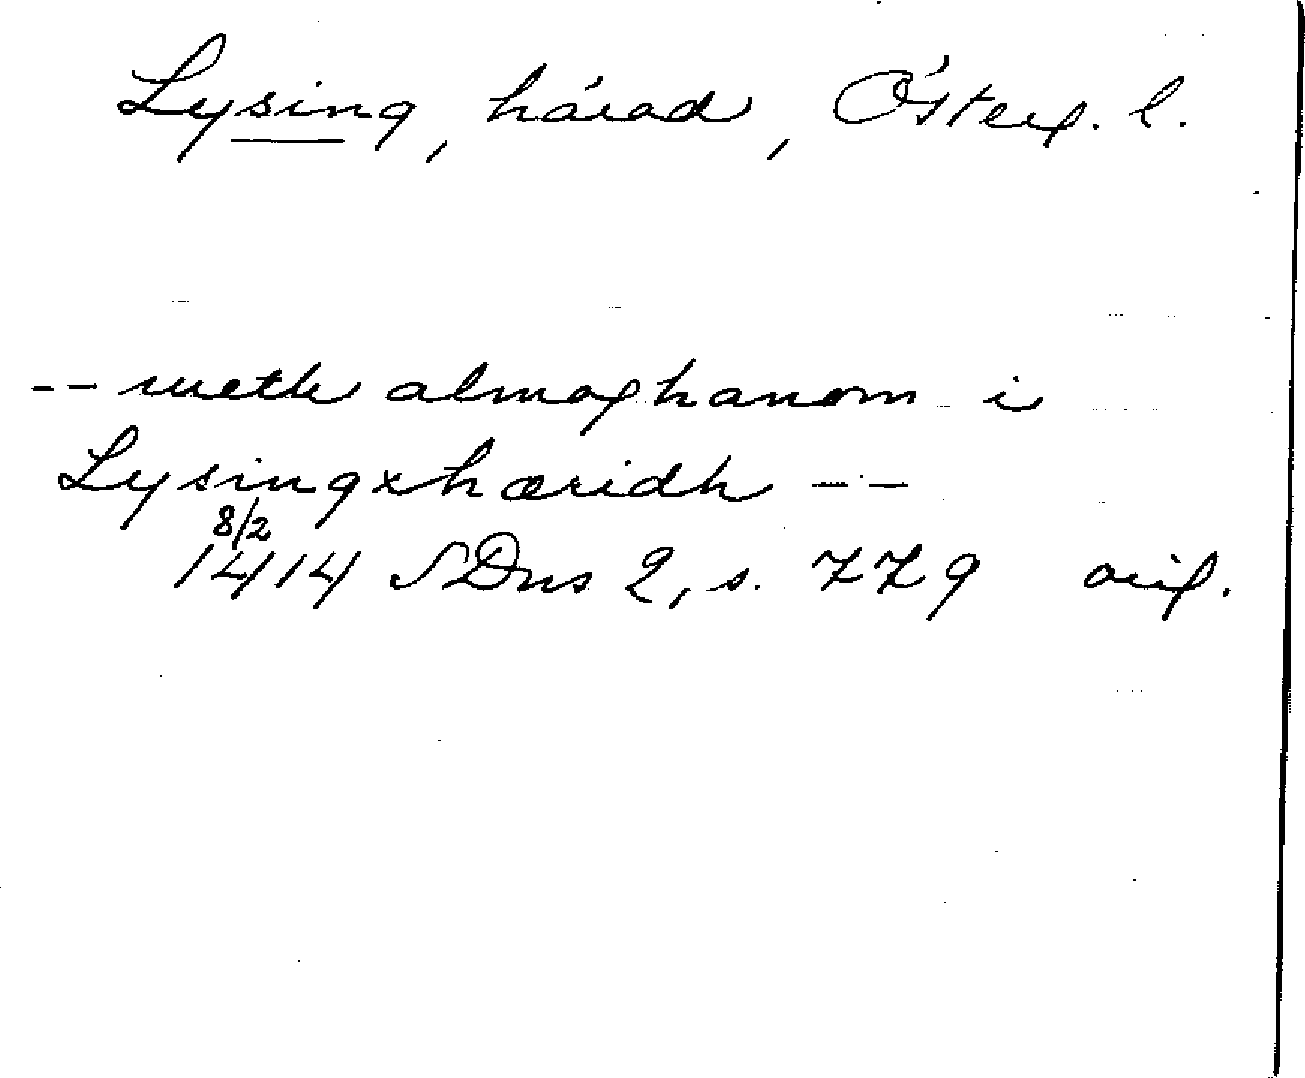 Lysing, härad, Österg. l.
-- meth almoghanom i
Lysingxhæridh --
8/2
1414 SDns 2, s. 779 orig.